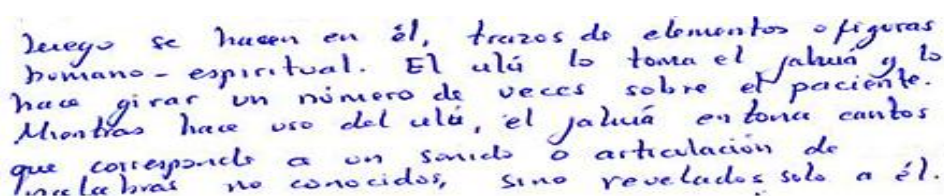 luego se hacen en él, trazos de elementos o figuras
humano-espiritual. El ulú lo toma el jaluá y lo
hace girar un número de veces sobre el paciente.
Mientras hace uso del ulú, el jaluá entona cantos
que corresponde a un sonido o articulación de
palabras no conocidos, sino revelados solo a él.